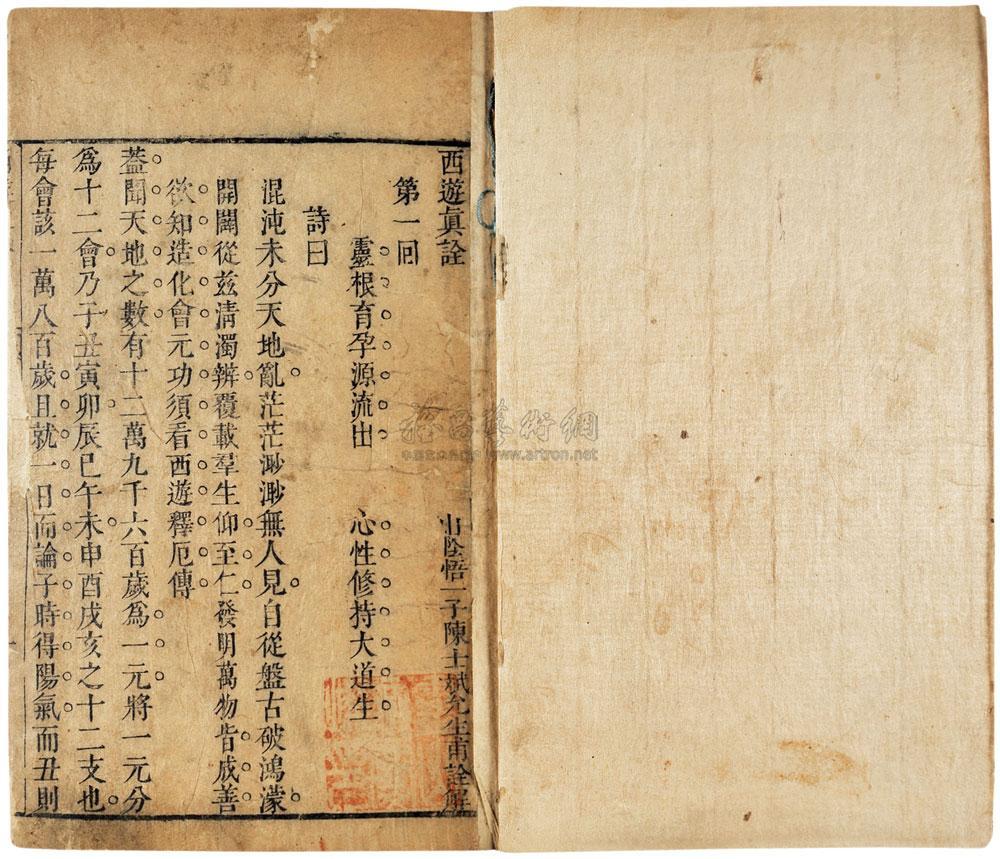 西遊眞詮　山陰悟一子陳士斌允生甫詮解
第一回
靈根育孕源流出　心性修持大道生
詩曰
混沌未分天地亂茫茫渺渺無人見自從盤古破鴻濛
開闢從玆淸濁辨覆載羣生仰至仁發明萬物皆成善
欲知造化會元功須看西遊釋厄傳
葢聞天地之數有十二萬九千六百歲爲一元將一元分
爲十二會乃子丑寅卯辰巳午未申酉戌亥之十二支也
每會該一萬八百歲且就一日而論子時得陽氣而丑則
www.artron.net